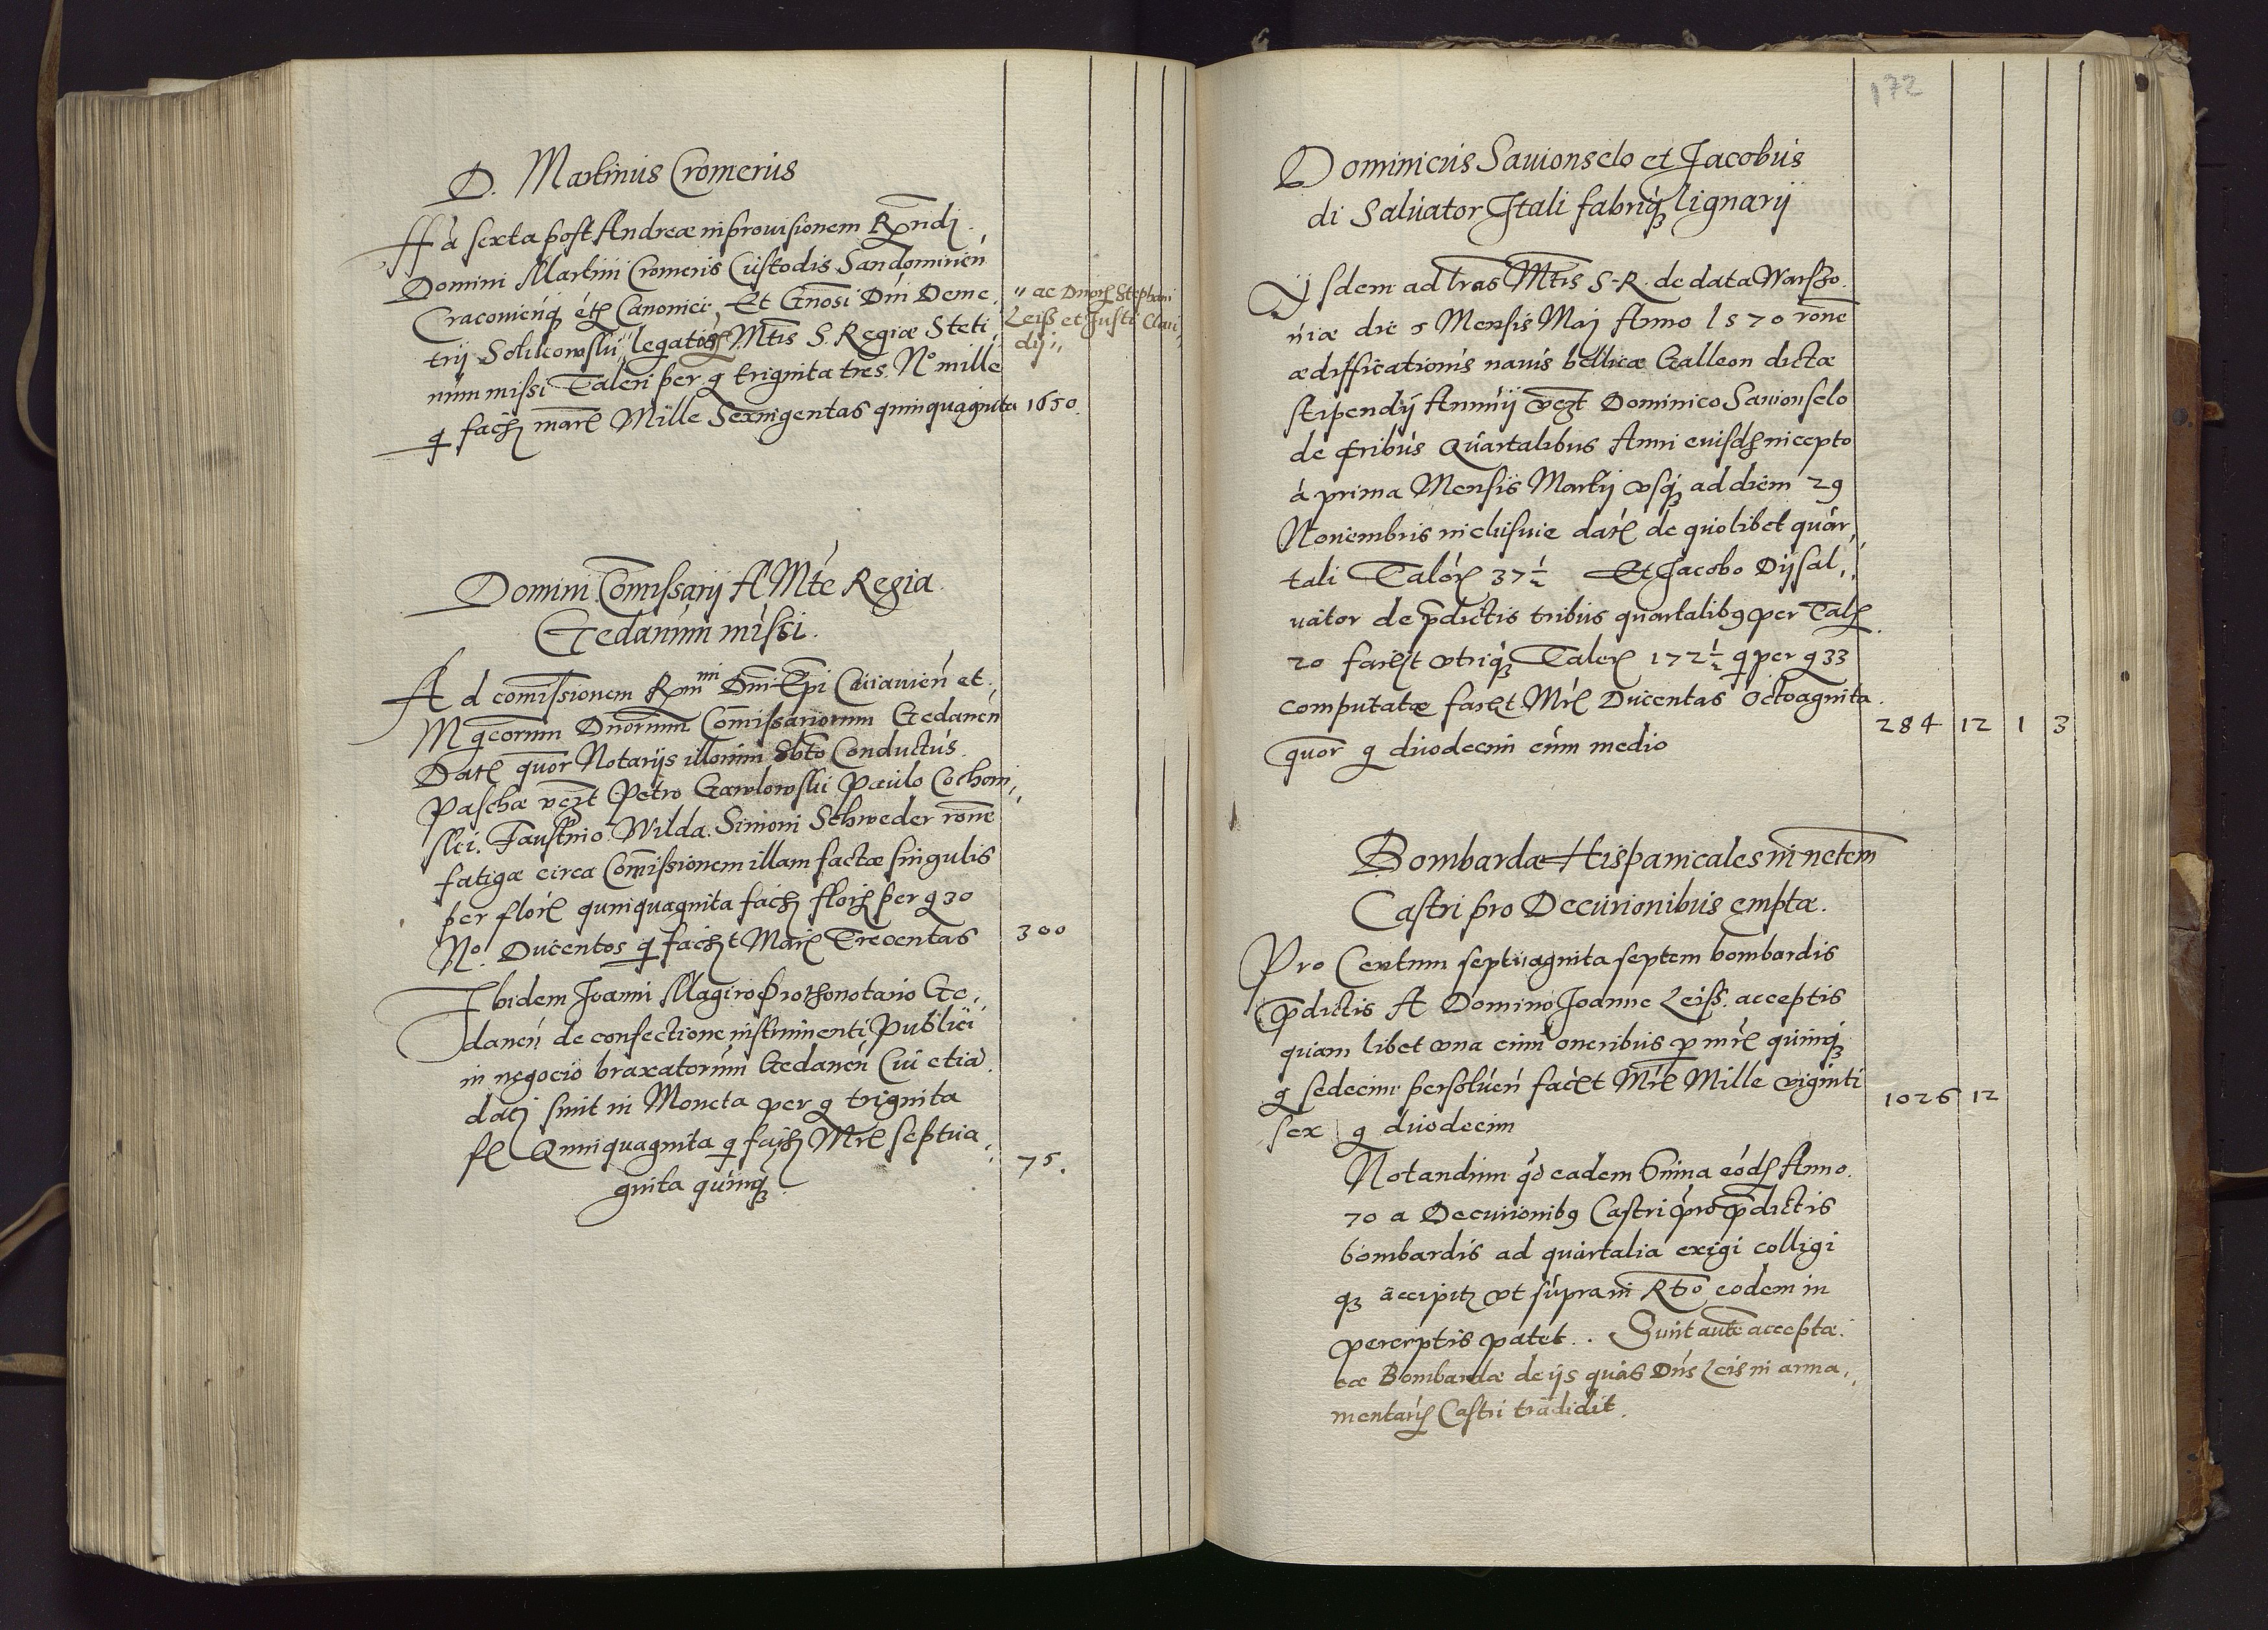 D. Martinus Cromerus
ffia sexta post Andreæ in provisionem Rṇndi
Domini Martini Cromeris Custodis Sandomirien
Cracovienq etc Canonici Et Gnosi Dni Deme,
trii Solikowski „ legatoꝝ Mtis S. Regiæ Steti
„ ac Dnorꝝ Stephani
Leiß et Justi Clau,
dij „
num missi Taleri per g triginta tres. No mille
q fac mare Mille Sexingentas quinquaginta 1650.
Domini Comissarij A Mte Regia
Gedanum missi.
Ad comissionem Rmi Dni Epi Cuiavien et
Mgcorum Dnorum Comissariorum Gedanen
Datꝭ quor Notarijs illorum Sbto Conductus
Paschæ vczt Petro Gawlowski Paulo Cochom,
ski. Faustino Wilda. Simoni Schweder rone
fatigæ circa Comissionem illam factæ singulis
per florꝭ quinquaginta fac florꝭ per g 30
No. Ducentos q facit Marꝭ Trecentas 300
Ibidem Joanni Magiro Prothonotario Ge,
danen de confectione instrumenti Publici
in negocio braxatorum Gedanen Cui etia
dati sunt in Moneta per g triginta
fl Quinquaginta q fac Mrꝭ septua,
ginta quinqꝫ 75.
172
Dominicus Savionselo et Jacobus
di Salvator Itali fabriqꝫ lignarij
Iisdem ad lras Mtis S. R. de data Warsso.
niæ die 5 Mensis Maj Anno 1570 rone
ædifficationis navis bellicæ Galleon dictæ
stipendij Annuij vczt Dominico Savionselo
de tribus Quartalibus Anni eiusdꝫ incepto
à prima Mensis Martij vsqꝫ ad diem 29
Novembris inclusive datꝭ de quolibet quar,
tali Talorꝭ 37½ Et Jacobo Dij Sal,
vator de pdictis tribus quartalibꝰ per Talꝭ
20 facit vtriqꝫ Talerꝭ 172½ q per g 33
computatæ facit Mrꝭ Ducentas Octoaginta
quor g duodecim cum medio 284 12 1 3
Bombardæ Hispanicales in netem
Castri pro Decurionibus emptæ.
Pro Centum septuaginta septem bombardis
pdictis A Domino Joanne Leiss. acceptis
quam libet vna cum oneribus p mrꝭ quinqꝫ
g sedecim persoluen facit Mrꝭ Mille viginti
sex g duodecim 1026 12
Notandum qd eadem Sum̄a eodꝫ Anno
70 a Decurionibꝰ Castri pro pdictis
bombardis ad quartalia exigi colligi
qꝫ accipitꝛ vt supra in Rto eodem in
perceptis patet. . Sunt aute acceptæ
eæ Bombardæ de ijs quas Dns Leis in arma,
mentarꝭ Castri tradidit.